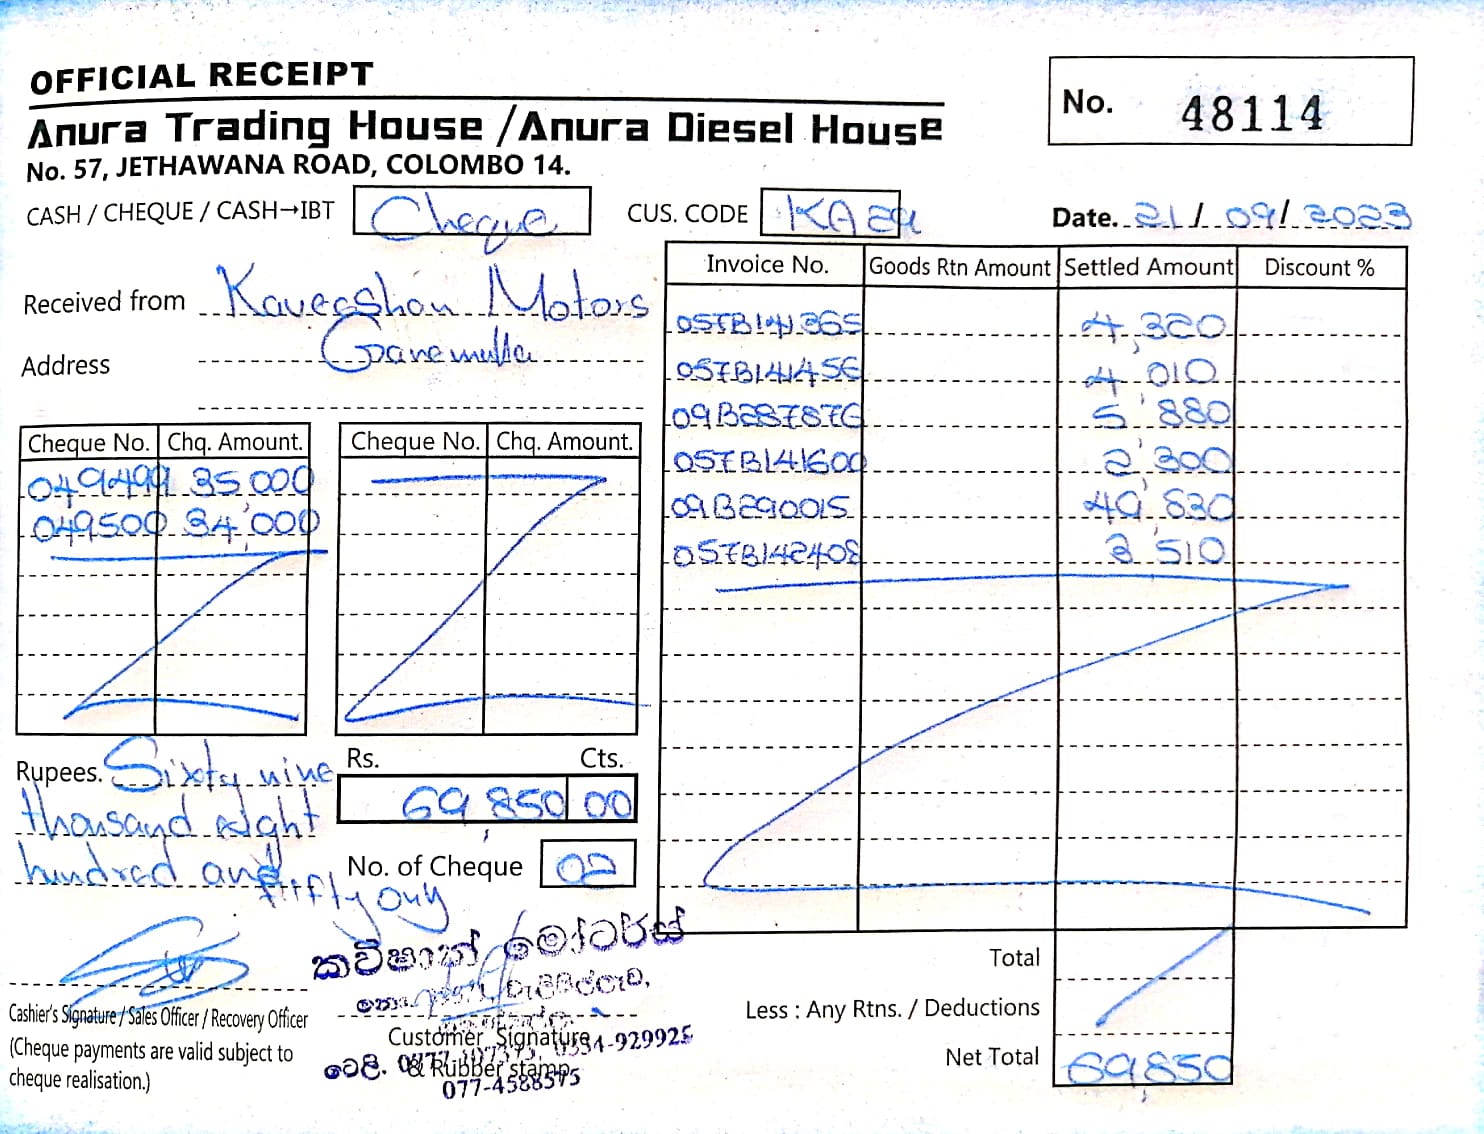 OFFICIAL RECEIPT
No. 48114
Anura Trading House /Anura Diesel House
No. 57, JETHAWANA ROAD, COLOMBO 14.
CASH / CHEQUE / CASH→IBT Cheque CUS. CODE KA29 Date. 21/09/2023
Received from Kaveeshan Motors
Address Ganemulla
Invoice No. Goods Rtn Amount Settled Amount Discount %
05TB141365 4,320
05TB141456 4,010
09B287876 5,880
05TB141600 2,300
09B290015 49,830
05TB142408 3,510
Cheque No. Chq. Amount. Cheque No. Chq. Amount.
049499 35,000
049500 34,000
Rupees. Sixty nine
thousand eight
hundred and
fifty only
Rs. Cts.
69,850 00
No. of Cheque 02
Total
Less : Any Rtns. / Deductions
Net Total 69,850
Cashier's Signature / Sales Officer / Recovery Officer
(Cheque payments are valid subject to
cheque realisation.)
කවිෂාන් මෝටර්ස්
Customer Signature
& Rubber stamp
077-4588575